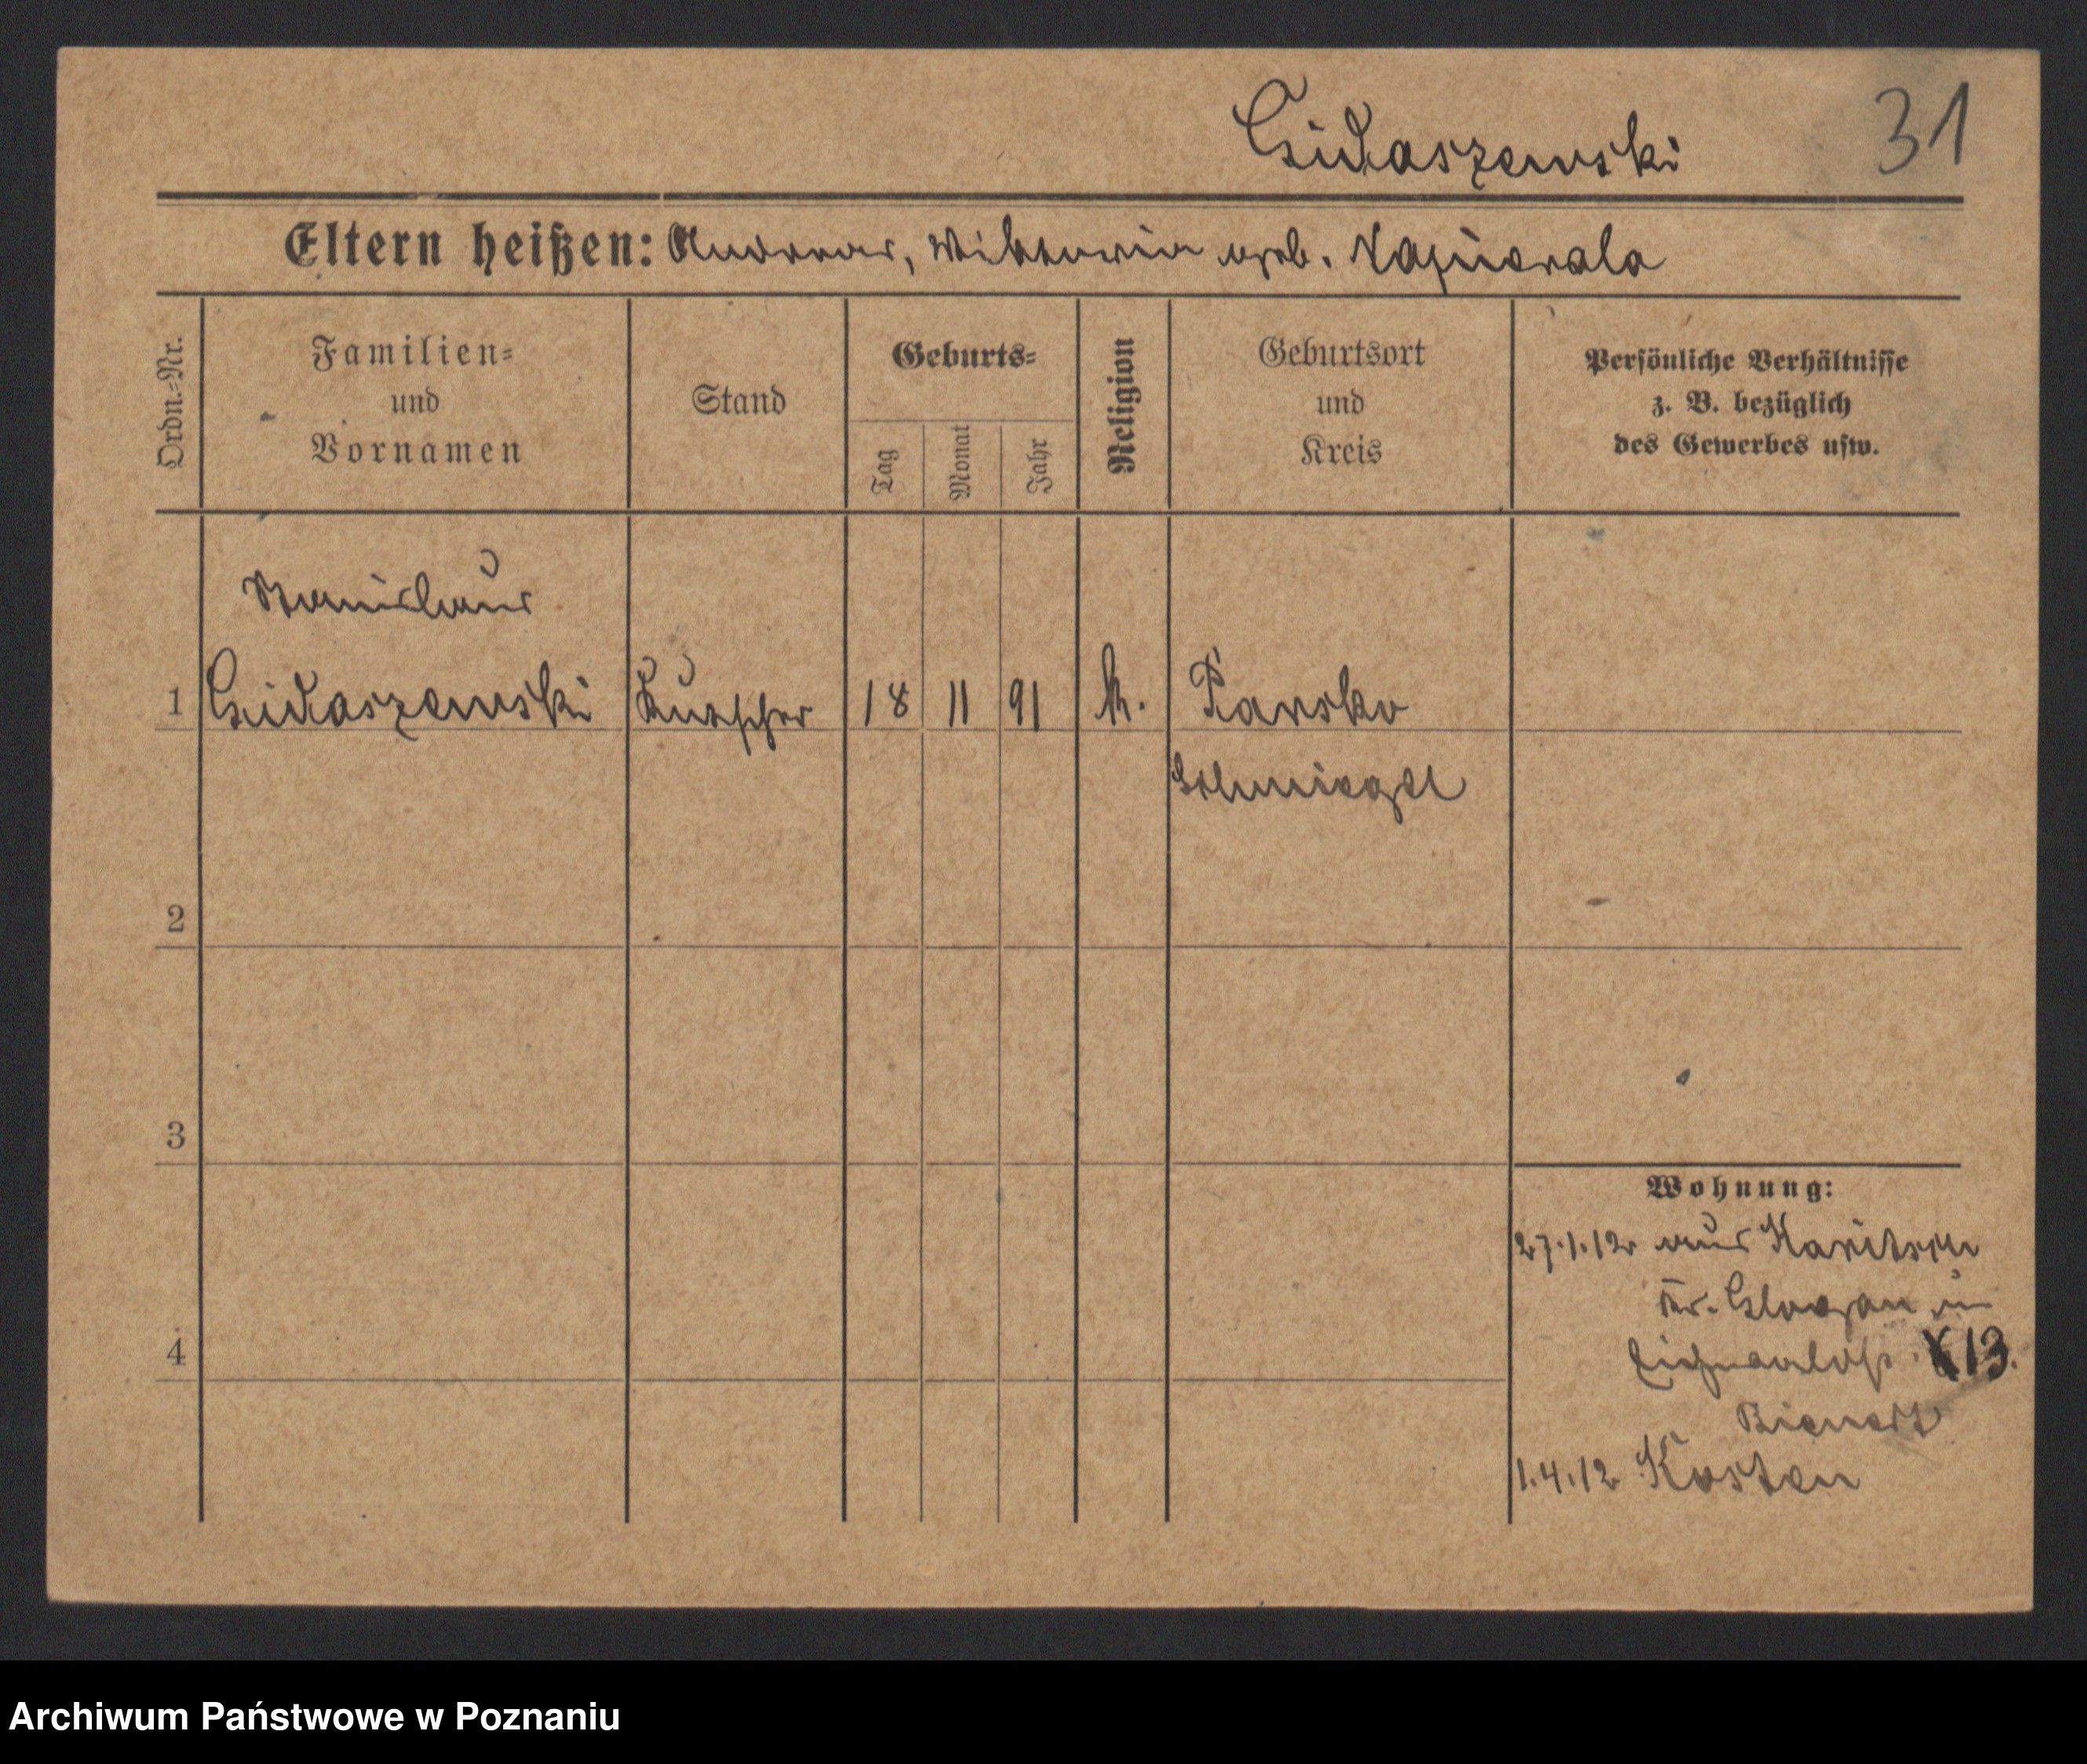 31
Eltern heißen: Andreas, Wiktoria geb.
Ordn.-Nr.
Familien-
und
Vornamen
Stand
Geburts-
Tag
Monat
Jahr
Religion
Geburtsort
und
Kreis
Persönliche Verhältnisse
z. B. bezüglich
des Gewerbes usw.
Stanislaus
1 Kutscher 18 11 91 k. Parsko
Schmiegel
2
3
4
Wohnung:
27.1.12 aus
Kr. Glogau in
13.
1.4.12 Kosten
Archiwum Państwowe w Poznaniu